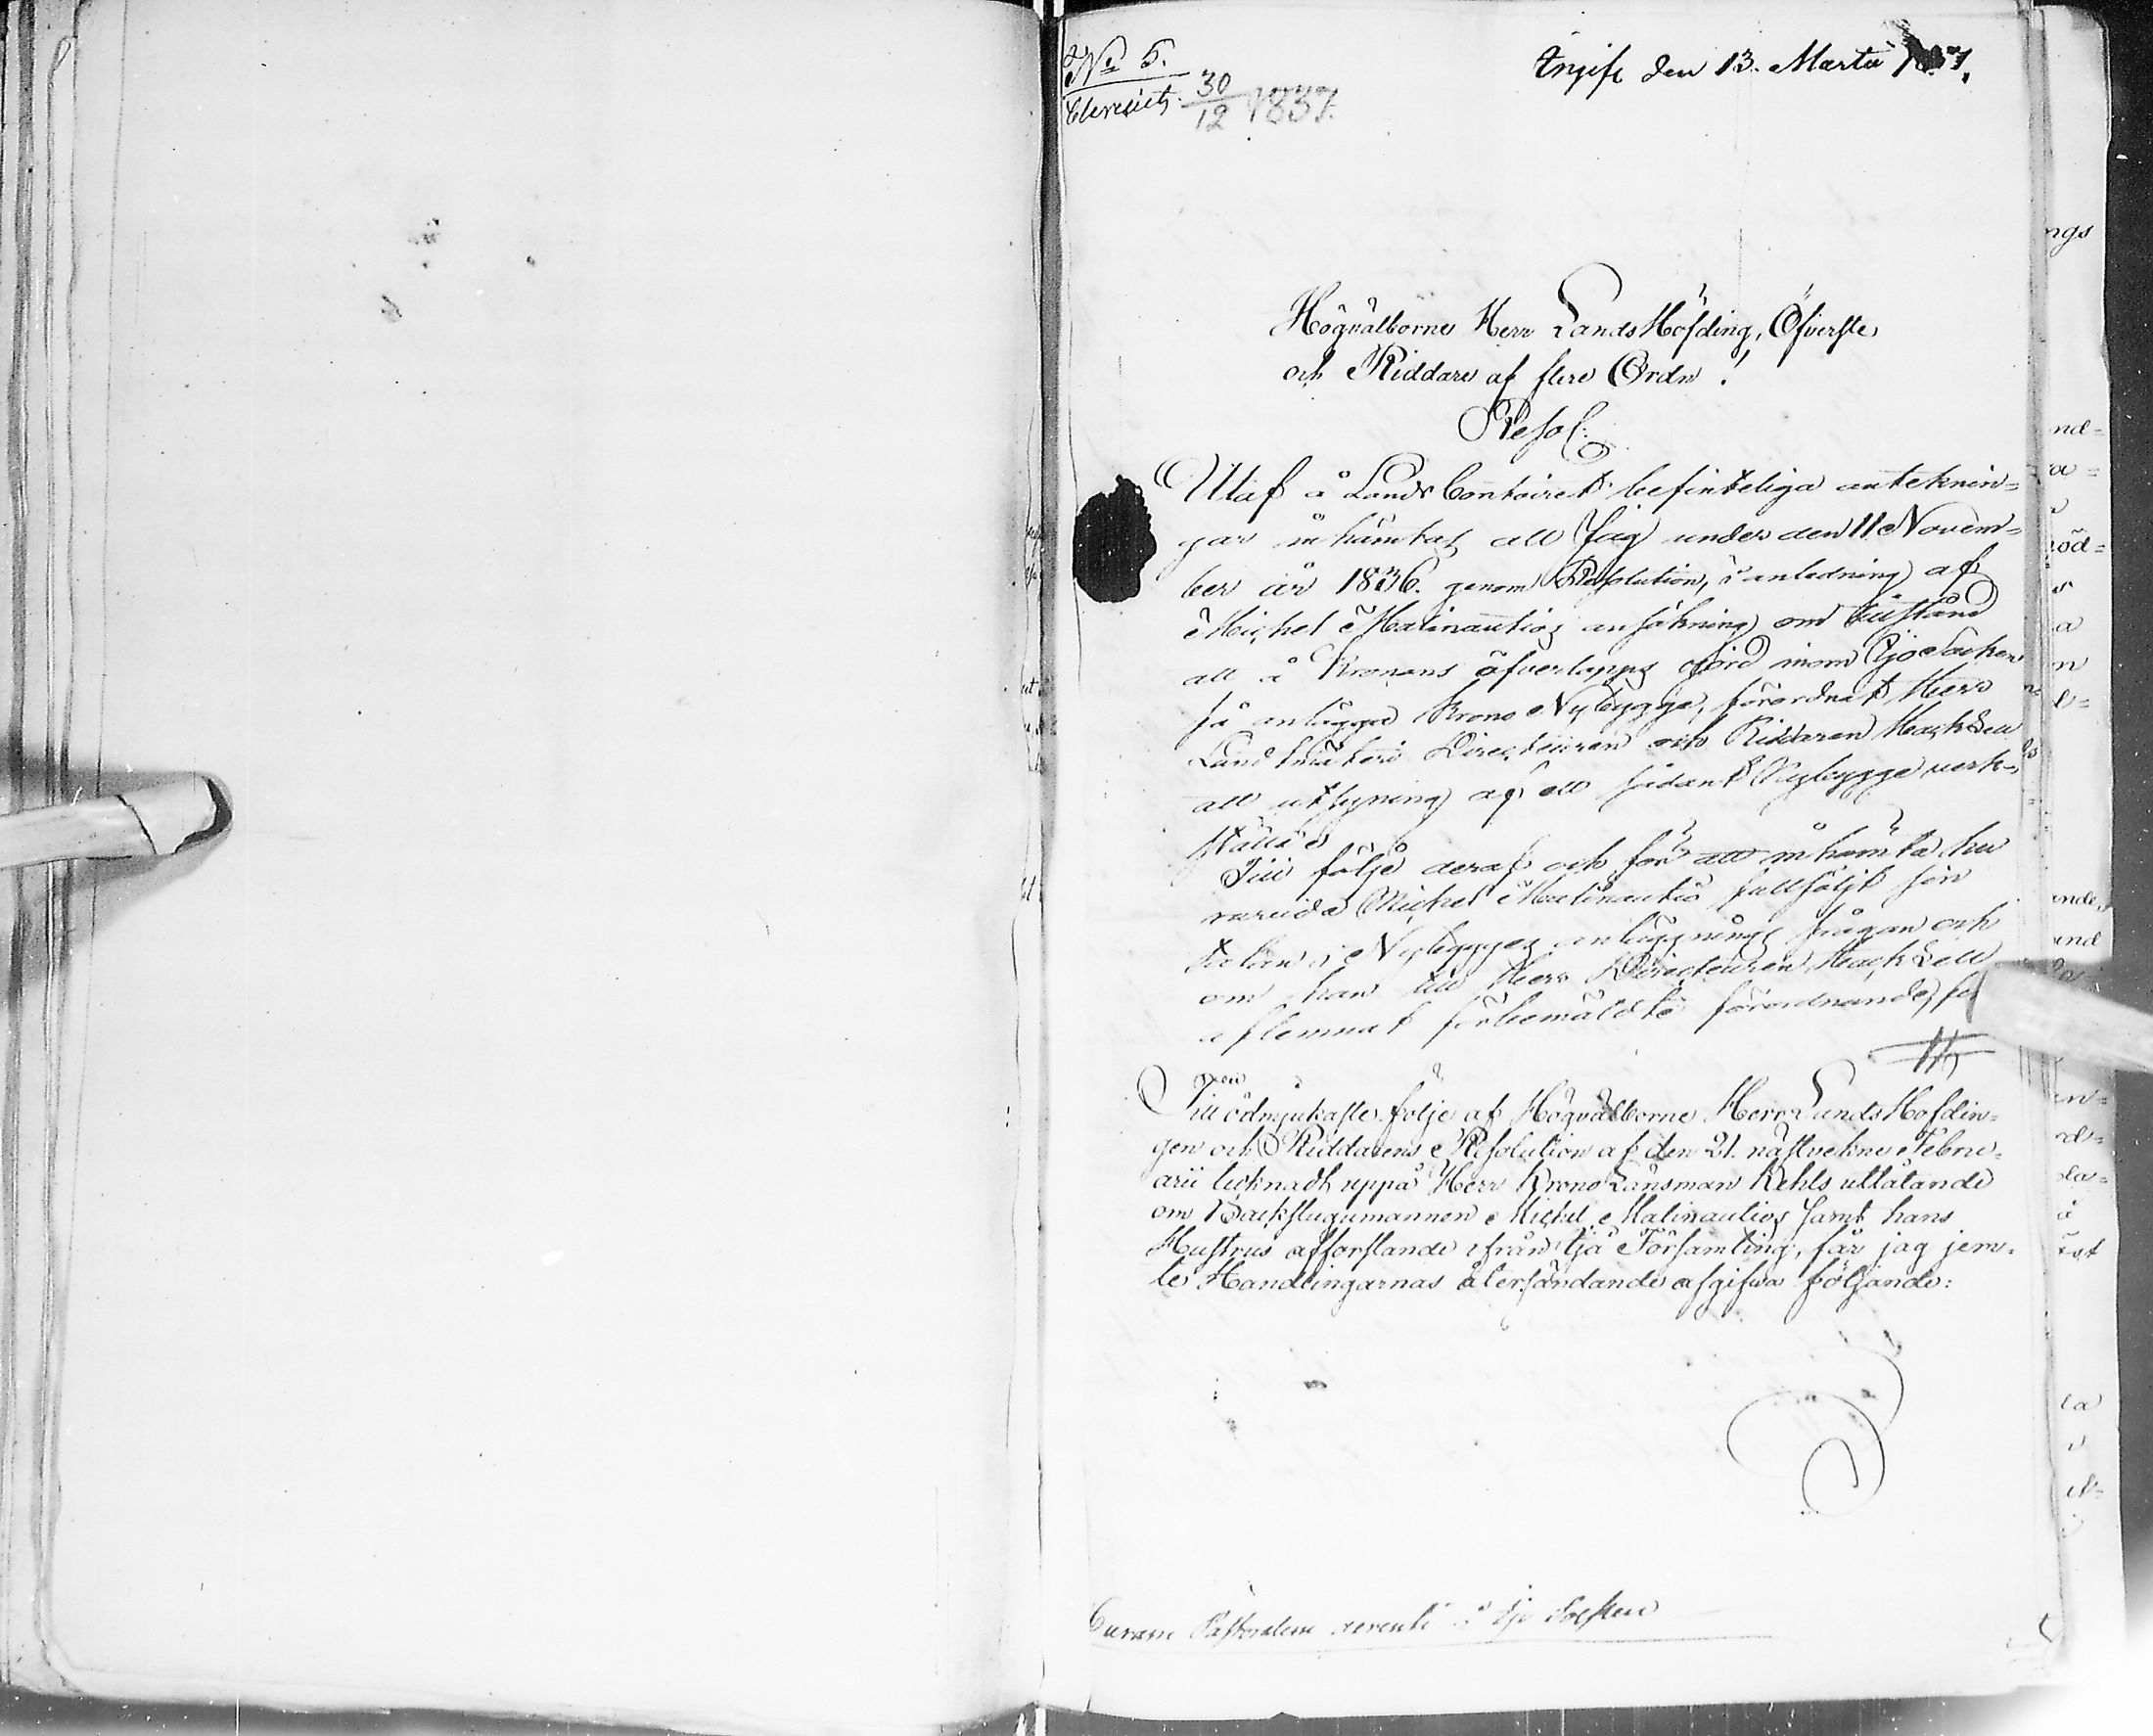 No 5.
30
12 1837.
Ingift den 13. Martii 1837.
Högvälborne Herr LandsHöfding, Öfverste
och Riddare af flere Ordn!
Resol:
Utaf å LandsContoiret befinteliga antecknin=
gar inhämtas att Jag under den 11 Novem=
ber år 1836. genom Resolution, i anledning af
Michel Malinautios ansökning om tillstånd
att å Kronans öfverlopps jord inom Ijo Socken
få anlägga Krono Nybygge, förordnat Herr
Landtmäteri Directeuren och Riddaren Macklin
att utsyning af ett sådant Nybygge verk=
ställa
Till följe deraf och för att inhämta hu
ruvida Michel Malinautio fullföljt sin
talan i Nybygges anläggnings frågan och
om han till Herr Directeuren
aflemnat förbemäldte förordnande,
Till ödmjukaste följe af Högvälborne Herr LandsHöfdin=
gen och Riddarens Resolution af den 21. nästvekne Febru=
arii tecknadt uppå Herr Krono Länsman Kehls utlåtande
om Backstugumannen Michel Malinautios samt hans
Hustrus afforslande ifrån Ijo Församling, får jag jem=
te Handlingarnas återsändande afgifva följande:
Curam Pastoralem gerenti i Ijo Socken